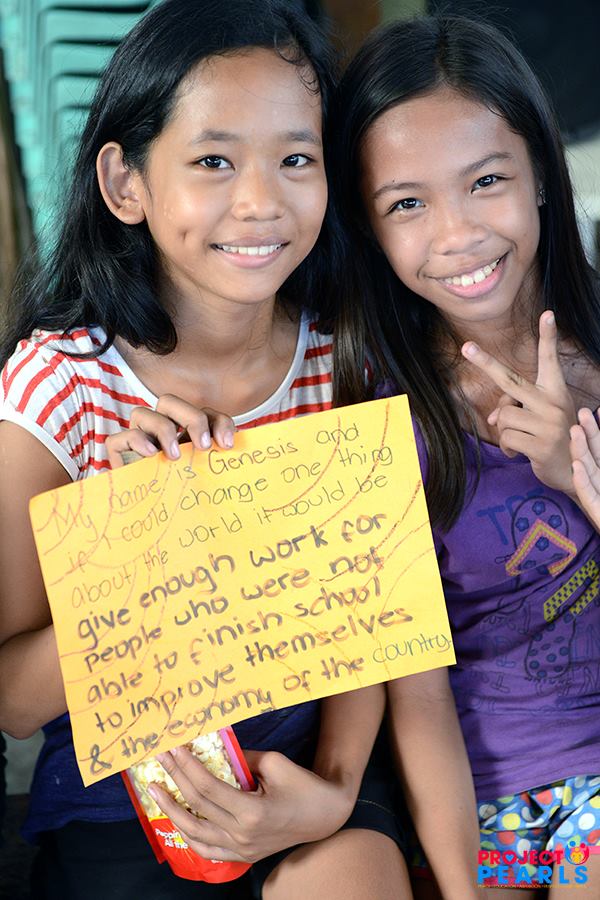 My name is Genesis and
if I could change one thing
about the world it would be
give enough work for
people who were not
able to finish school
to improve themselves
& the economy of the country.
PROJECT
PEARLS